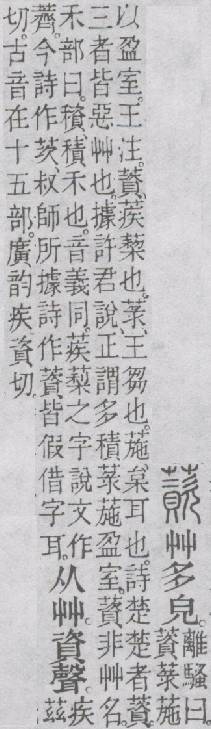 薋艸多皃。離騷曰。
薋菉葹
以盈室。王注。薋、蒺蔾也。菉、王芻也。葹、枲耳也。詩楚楚者薋。
三者皆惡艸也。據許君說。正謂多積菉葹盈室。薋非艸名。
禾部曰。𥢎、積禾也。音義同。蒺蔾之字說文作
薺。今詩作茨。叔師所據詩作薋。皆假借字耳。
从艸。資聲。
疾
茲
切。古音在十五部。廣韵疾資切。